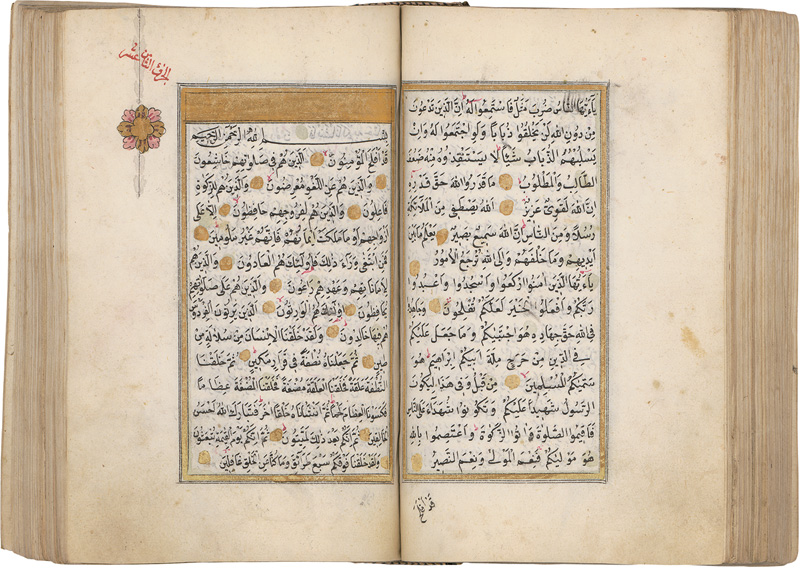 يا أيها الناس ضرب مثل فاستمعوا له إن الذين تدعون
من دون الله لن يخلقوا ذبابا ولو اجتمعوا له وإن
يسلبهم الذباب شيئا لا يستنقذوه منه ضعف
الطالب والمطلوب ما قدروا الله حق قدره
إن الله لقوي عزيز الله يصطفي من الملائكة
رسلا ومن الناس إن الله سميع بصير يعلم ما بين
أيديهم وما خلفهم وإلى الله ترجع الأمور
يا أيها الذين آمنوا اركعوا واسجدوا واعبدوا
ربكم وافعلوا الخير لعلكم تفلحون وجاهدوا
في الله حق جهاده هو اجتبيكم وما جعل عليكم
في الدين من حرج ملة أبيكم إبراهيم هو
سميكم المسلمين من قبل وفي هذا ليكون
الرسول شهيدا عليكم وتكونوا شهداء على الناس
فاقيموا الصلوة وآتوا الزكوة واعتصموا بالله
هو موليكم فنعم المولى ونعم النصير
قد أفلح
الجزء الثامن عشر
بسم الله الرحمن الرحيم
قد أفلح المؤمنون الذين هم في صلاتهم خاشعون
والذين هم عن اللغو معرضون والذين هم للزكوة
فاعلون والذين هم لفروجهم حافظون إلا على
أزواجهم أو ما ملكت أيمانهم فإنهم غير ملومين
فمن ابتغى وراء ذلك فأولئك هم العادون والذين هم
لأماناتهم وعهدهم راعون والذين هم على صلواتهم
يحافظون أولئك هم الوارثون الذين يرثون الفردوس
هم فيها خالدون ولقد خلقنا الإنسان من سلالة من
طين ثم جعلناه نطفة في قرار مكين ثم خلقنا
النطفة علقة فخلقنا العلقة مضغة فخلقنا المضغة عظاما
فكسونا العظام لحما ثم أنشأناه خلقا آخر فتبارك الله أحسن
الخالقين ثم إنكم بعد ذلك لميتون ثم إنكم يوم القيمة تبعثون
ولقد خلقنا فوقكم سبع طرائق وما كنا عن الخلق غافلين